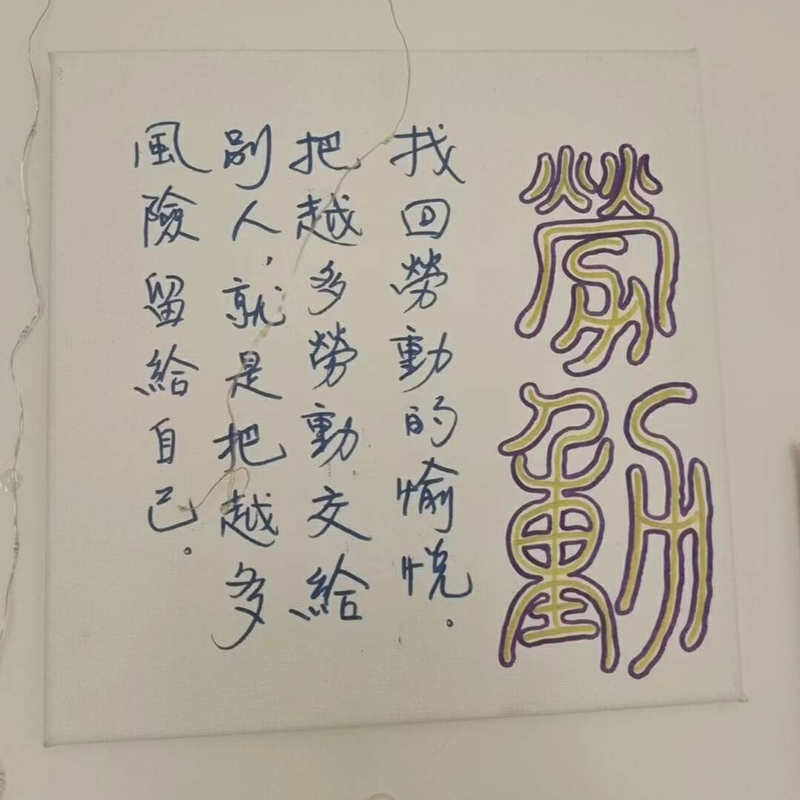 勞動
找回勞動的愉悅.
把越多勞動交給
別人,就是把越多
風險留給自己.